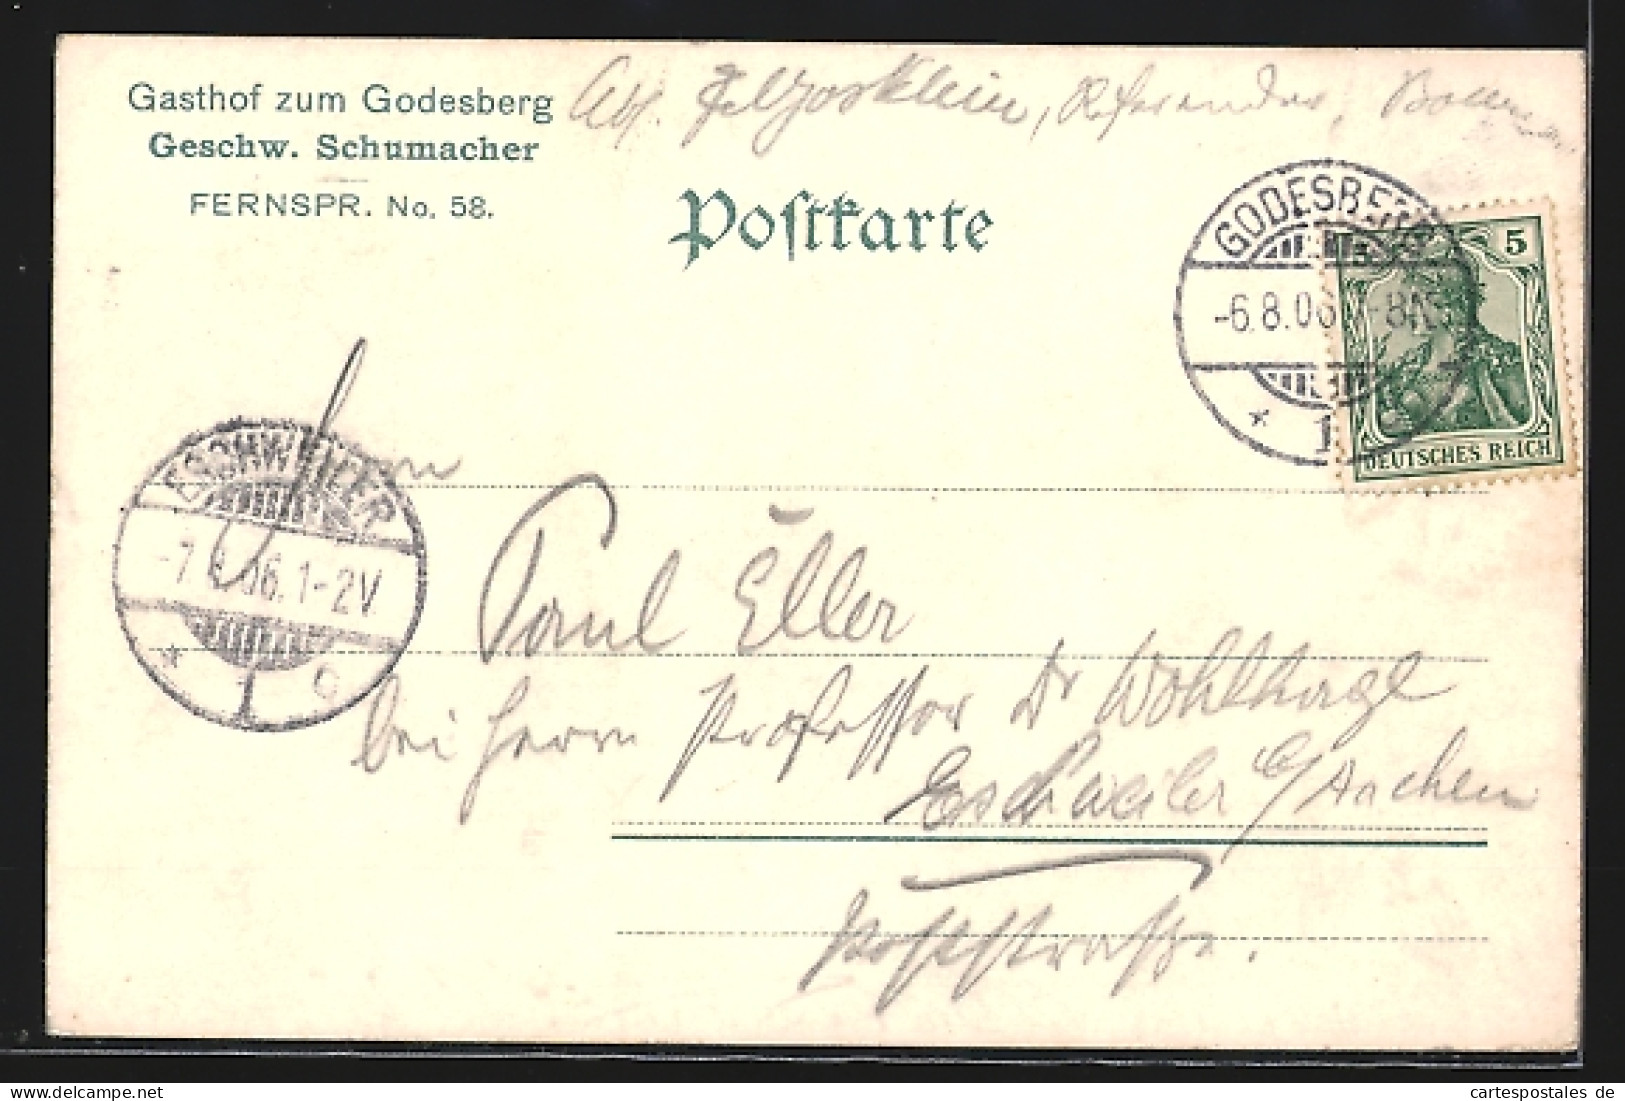 Gasthof zum Godesberg
Geschw. Schumacher
FERNSPR. No. 58.
Abs. Referendar, Bonn
Postkarte
GODESBERG
-6.8.06. 7-8N.
1
5
DEUTSCHES REICH
ESCHWEILER
-7.8.06. 1-2V
1 c
Herrn
Paul Eller
bei Herrn Professor Dr Wohlhage
Eschweiler b/Aachen
Poststrasse.
cartespostales de